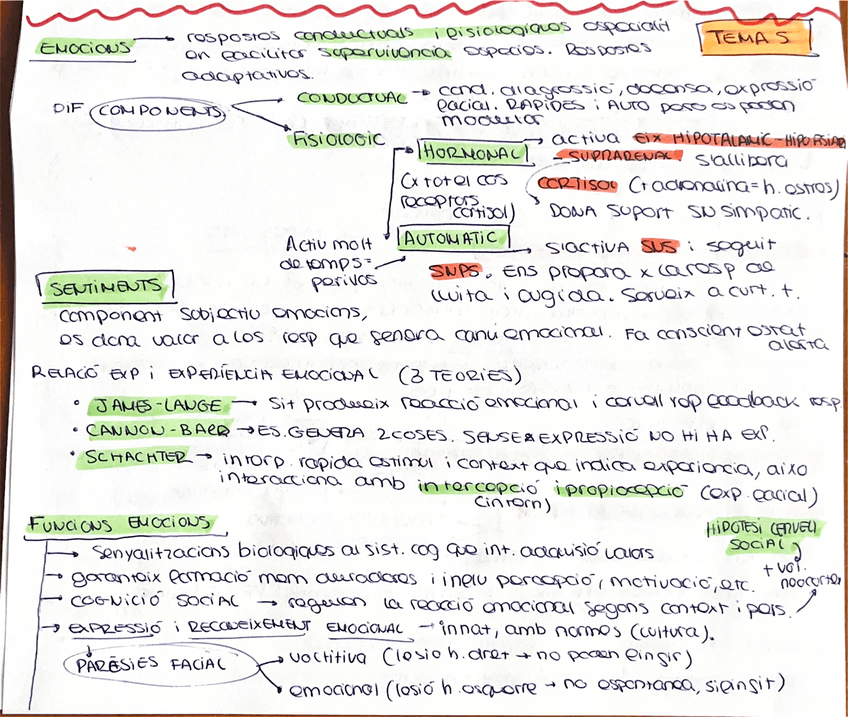 EMOCIONS → respostes conductuals i fisiològiques especialit
en facilitar supervivència espècies. Respostes
adaptatives.
TEMA 5
DIF COMPONENTS
CONDUCTUAL → cond. d'agressió, defensa, expressió
facial. RÀPIDES i AUTO però es poden
modular
Fisiològic
HORMONAL → activa EIX HIPOTALAMIC-HIPOFISIARI
-SUPRARENAL s'allibera
(x tot el cos
receptors
cortisol)
CORTISOL (+ adrenalina = h. estrès)
DONA SUPORT SN SIMPATIC.
AUTOMATIC → s'activa SNS i seguit
SNPS. Ens prepara x la resp de
lluita i fugida. Serveix a curt. t.
Activ molt
de temps =
perillós
SENTIMENTS
component subjectiu emocions,
es dona valor a les resp que genera canvi emocional. Fa conscient estat
alerta
RELACIÓ EXP i EXPERIÈNCIA EMOCIONAL (3 TEORIES)
• JAMES-LANGE → Sit produeix reacció emocional i cervell rep feedback resp.
• CANNON-BARD → ES GENERA 2 COSES. SENSE EXPRESSIÓ NO HI HA EXP.
• SCHACHTER → interp. rapida estimul i context que indica experiencia, això
interacciona amb intercepció i propiocepció (exp. facial)
(intern)
FUNCIONS EMOCIONS
HIPÒTESI CERVELL
SOCIAL
+ vol.
neocortex
→ Senyalitzacions biològiques al sist. cog que int. adquisió valors
→ garanteix formació mem duradores i influ percepció, motivació, etc.
→ COGNICIÓ SOCIAL → regulen la reacció emocional segons context i pers.
→ EXPRESSIÓ i RECONEIXEMENT EMOCIONAL → innat, amb normes (cultura).
PARÈSIES FACIAL
volitiva (lesió h. dret → no poden fingir)
emocional (lesió h. esquerre → no espontanea, si fingit)